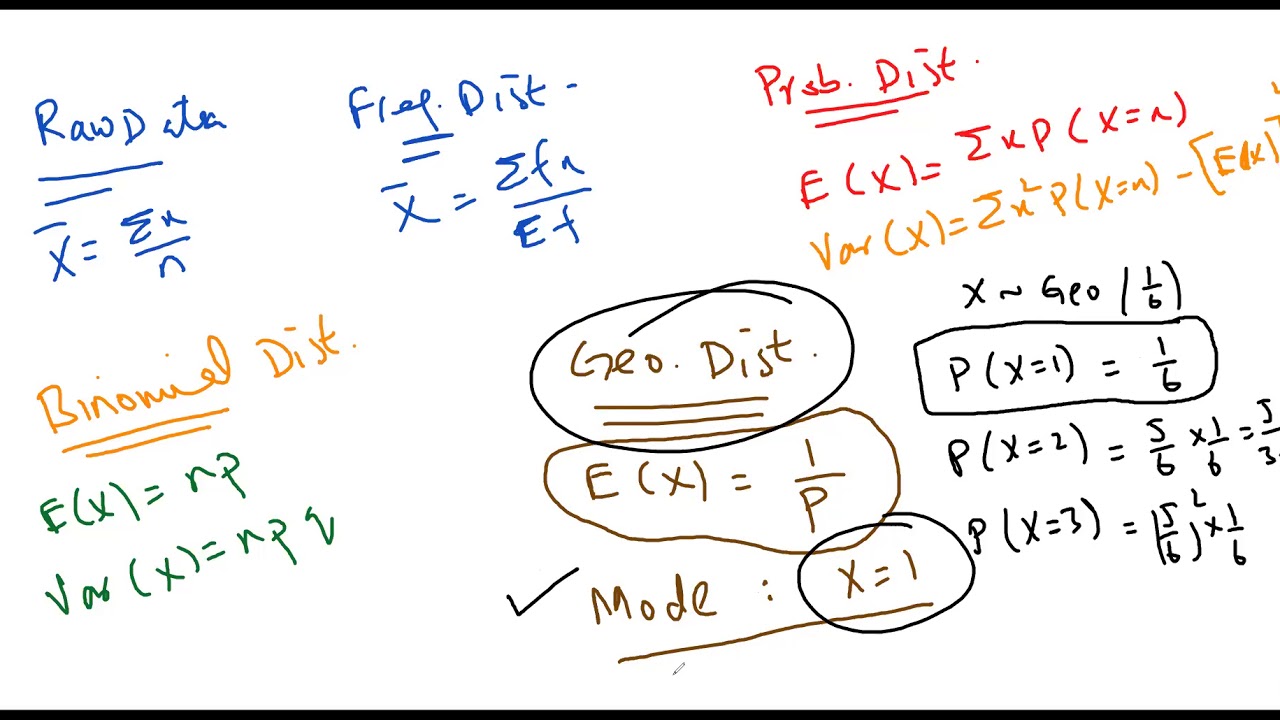 Raw Data
X̄ = Σx/n
Freq. Dist -
X̄ = Σfx/Σf
Prob. Dist.
E(X) = Σx P(X=x)
Var(X) = Σx² P(X=x) - [E(X)]
Binomial Dist.
E(X) = np
Var(X) = npq
Geo. Dist.
E(X) = 1/P
Mode : X=1
X ~ Geo(1/6)
P(X=1) = 1/6
P(X=2) = 5/6 × 1/6 = 5/3
P(X=3) = (5/6)² × 1/6